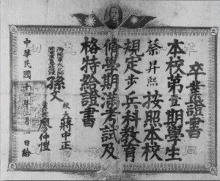 卒業證書
本校第壹期學生
蔡昇熙按照本校
規定步兵科教育
修學期滿考試及
格特給證書
孫文
校長 蔣中正
廖仲愷
中華民國
日給